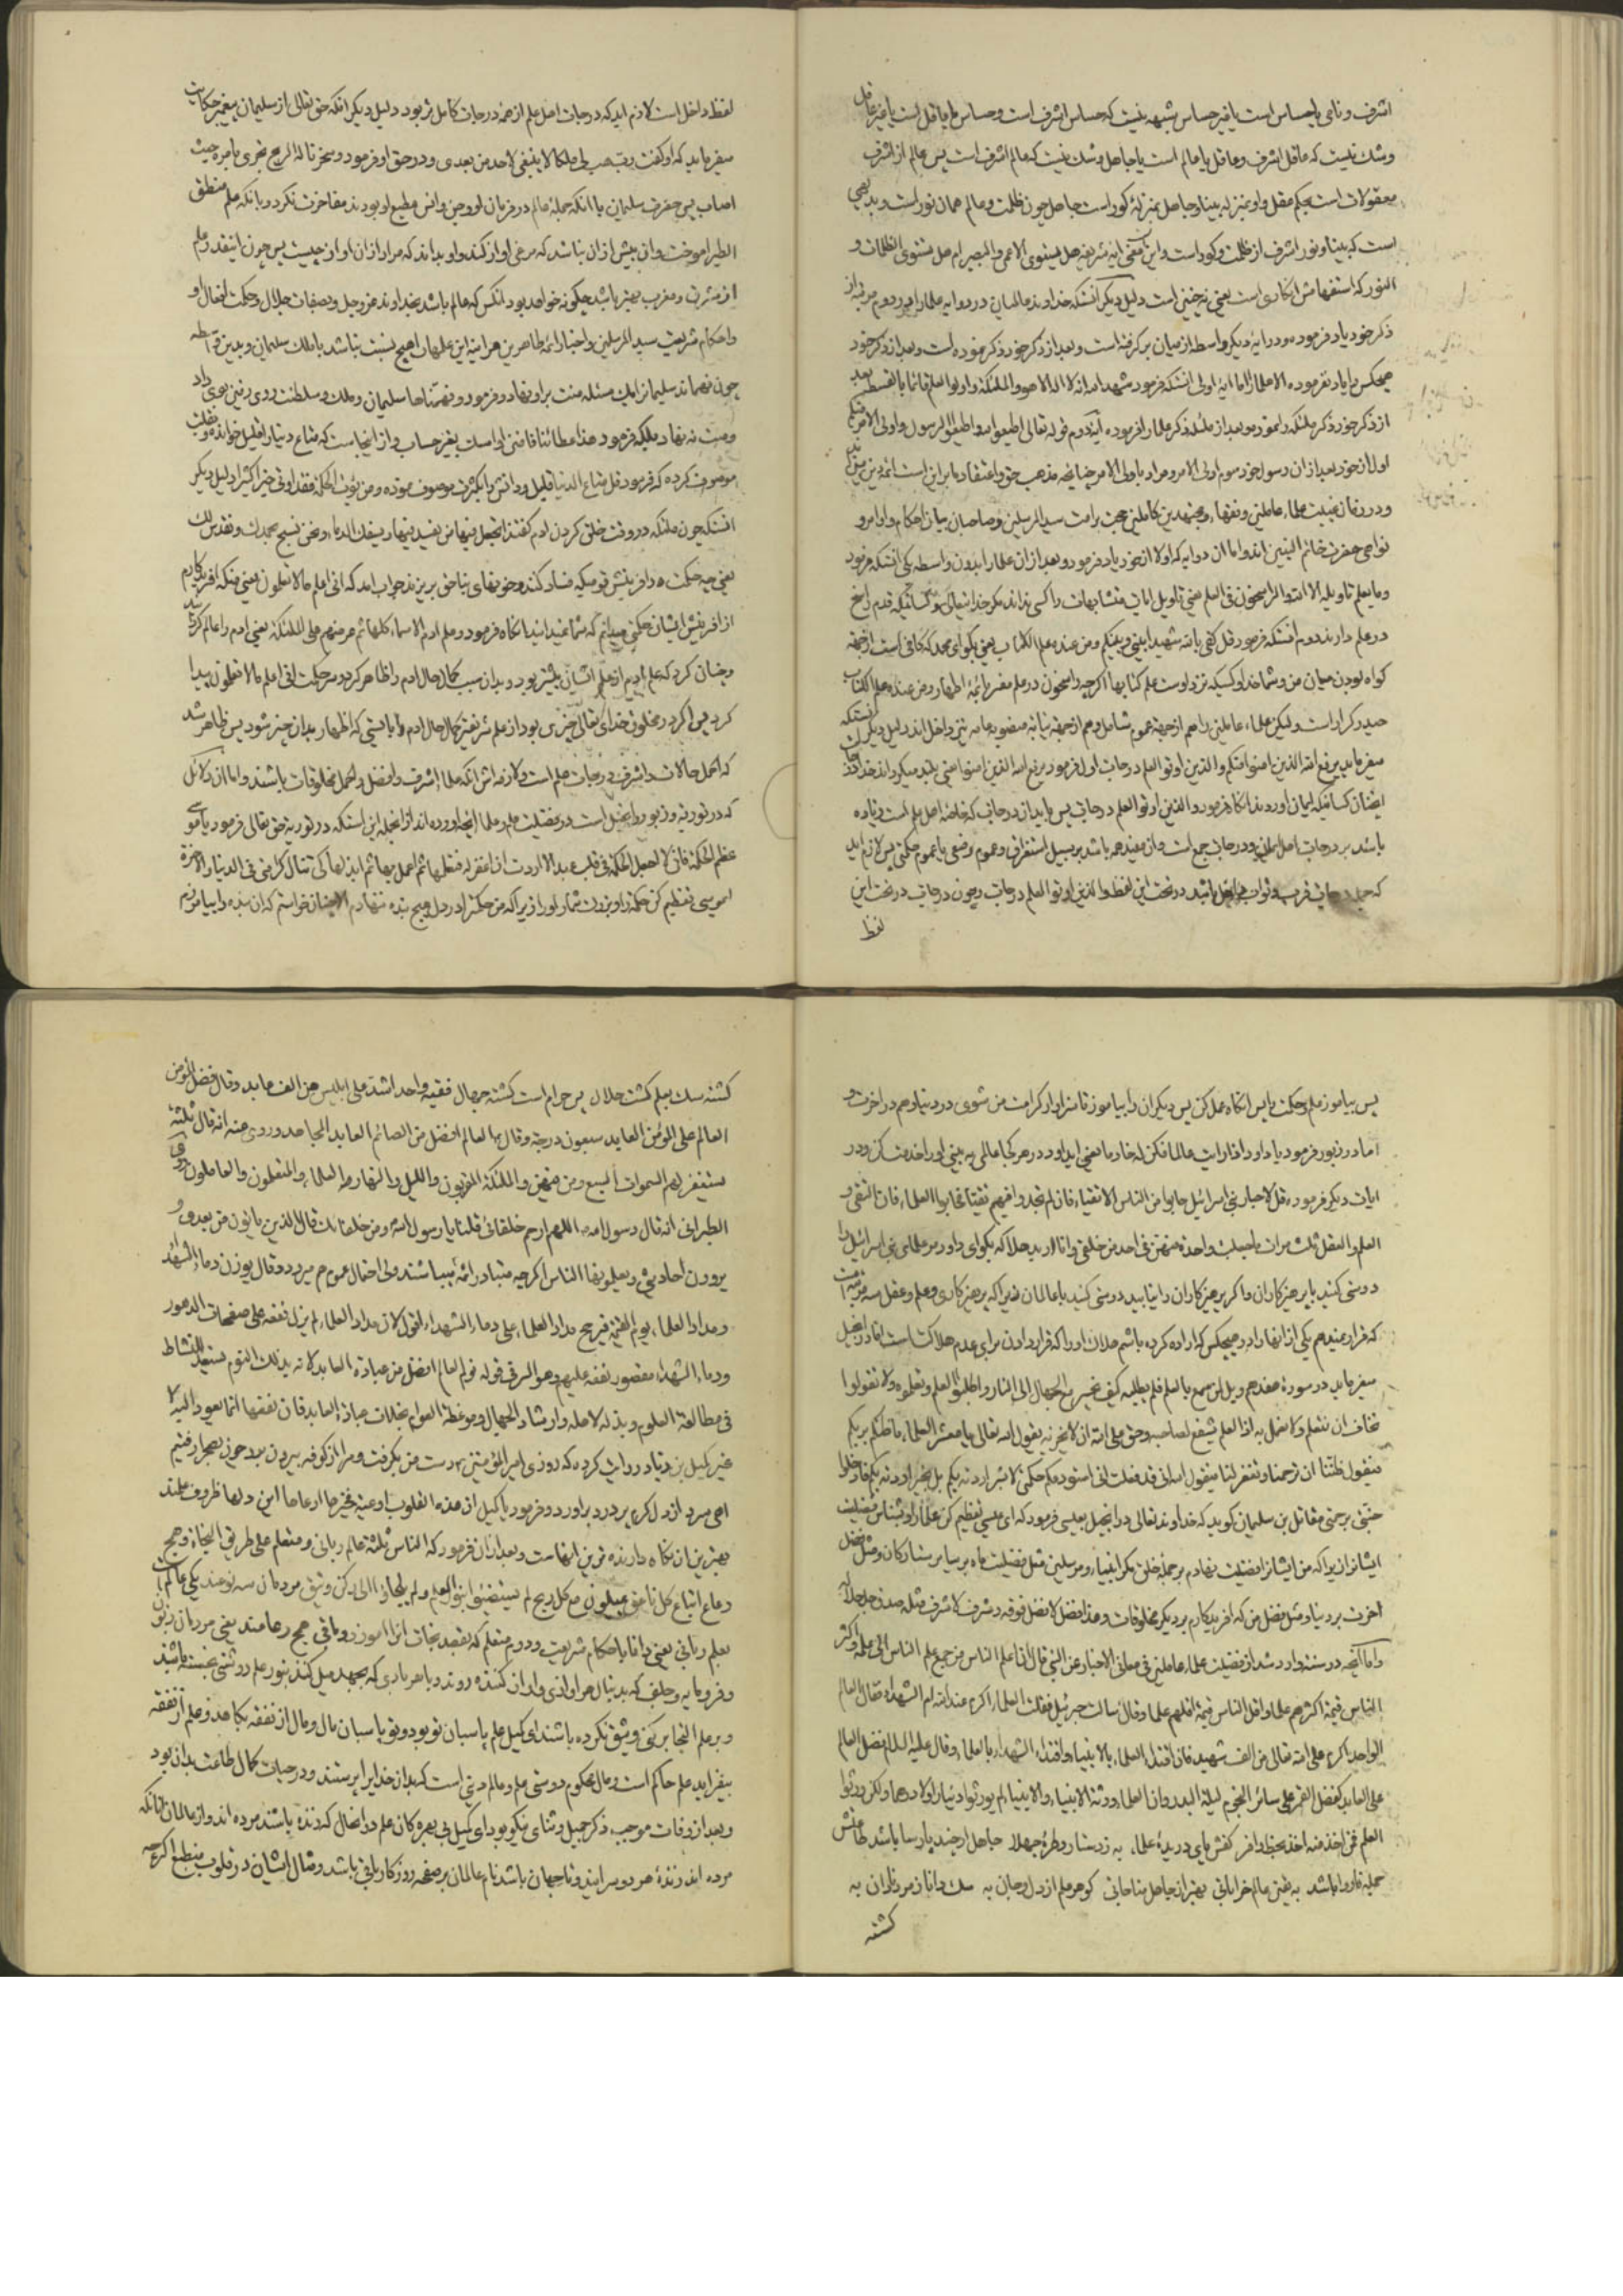 اشرف و نامی یا حساس است یا غیر حساس شبهه نیست که حساس اشرف است و حساس یا عاقل است یا غیر عاقل
و شک نیست که عاقل اشرف و عاقل یا عالم است یا جاهل و شک نیست که عالم اشرف است پس عالم از اشرف
معقولات است بحکم عقل و او بمنزله بینا و جاهل بمنزلهٔ کور است جاهل چون ظلمت و عالم همان نور است و بدیهی
است که بینا و نور اشرف از ظلمت و کور است و این معنی ایه شریفه هل یستوی الاعمی و البصیر ام هل تستوی الظلمات و
النور که استفهامش انکاری است یعنی نه چنین است دلیل دیکر انستکه خداوند عالمیان در دو ایه علما را در دوم مرتبه از
ذکر خود یاد فرموده و در ایهٔ دیکر واسطه از میان برکرفته است و بعد از ذکر خود ذکر نموده است و بعد از ذکر خود
هیچکس را یاد نفرموده الا علما را اما ایهٔ اولی انستکه فرمود شهد الله انه لا اله الا هو و الملئکة و اولوا العلم قائما بالقسط بعد
از ذکر خود ذکر ملئکه را نمود و بعد از ملئکه ذکر علما را فرموده آیه دوم قوله تعالی اطیعوا الله و اطیعوا الرسول و اولی الامر منکم
اول از خود بعد از ان رسول خود سوم اولی الامر و مراد با ولی الامر چنانچه مذهب حق و اعتقاد ما بر این است ائمهٔ دین مبین اند
و در زمان غیبت علماء عاملین و فقهاء و مجتهدین کاملین حجت رامت سید المرسلین و صاحبان بیان احکام و اوامر و
نواهی حضرت خاتم النبیین اند و اما ان دو ایه که اولا از خود یاد فرمود و بعد از ان علما را بدون واسطه یکی انستکه فرمود
و ما یعلم تاویله الا الله و الراسخون فی العلم یعنی تاویل ایات متشابهات را کسی نداند مکر خدایتعالی و کسانیکه قدم راسخ
در علم دارند دوم انستکه فرمود قل کفی بالله شهیدا بینی و بینکم و من عنده علم الکتاب یعنی بکو ای محمد که کافی است از جهة
کواه بودن میان من و شما خدا و کسیکه نزد اوست علم کتابها اکرچه راسخون در علم مفسر بائمهٔ اطهار و من عنده علم الکتاب
حیدر کرار است و لیکن علماء عاملین را هم از جهة عموم شامل و هم از جهة نیابه منصوبه عامه نیز داخل اند دلیل دیکر انستکه
میفرماید یرفع الله الذین امنوا منکم و الذین اوتوا العلم درجات اول فرمود یرفع الله الذین امنوا یعنی بلند میکرداند خدا درجات
ایشان کسانیکه ایمان اوردند انکاه فرمود و الذین اوتوا العلم درجات پس باید از درجاتی که خاصهٔ اهل علم است زیاده
باشد بر درجات اهل ایمان و درجات جمع است و ان مفید همه باشد بر سبیل استغراق و عموم وضعی یا عموم حکمتی پس لازم اید
که جمله درجات قرب و ثواب داخل باشد در تحت این لفظ و الذین اوتوا العلم درجات و چون درجات در تحت این
لفظ
لفظ داخل است لازم اید که درجات اهل علم از همهٔ درجات کامل تر بود دلیل دیکر انکه حق تعالی از سلیمان پیغمبر حکایت
میفرماید که او کفت رب هب لی ملکا لا ینبغی لاحد من بعدی و در حق او فرمود و سخرنا له الریح تجری بامره حیث
اصاب پس حضرت سلیمان با انکه جملهٔ عالم در فرمان او و جن و انس مطیع او بودند مفاخرت نکرد و بانکه علم منطق
الطیر اموخت و این بیش از ان نباشد که مرغی اواز کند و او بداند که مراد از ان اواز چیست پس چون اینقدر علم
از مشرق و مغرب بهتر باشد چکونه خواهد بود انکس که عالم باشد بخداوند عزوجل و بصفات جلال و حکمت افعال او
و احکام شریعت سید المرسلین و اخبار ائمهٔ طاهرین هر اینه این علمها را هیچ نسبت نباشد با ملک سلیمان و بدین واسطه
چون فهماند سلیمان را یک مسئله منت بر او نهاد و فرمود و ففهمناها سلیمان و ملک و سلطنت روی زمین بوی داد
و منت نه نهاد بلکه فرمود هذا عطائنا فامنن او امسک بغیر حساب و از اینجاست که متاع دنیا را قلیل خوانده و بقلت
موصوف کرده که فرمود قل متاع الدنیا قلیل و دانش را بکثرت موصوف نموده و من یؤت الحکمة فقد اوتی خیرا کثیرا دلیل دیکر
انستکه چون ملئکه در وقت خلق کردن ادم کفتند اتجعل فیها من یفسد فیها و یسفک الدماء و نحن نسبح بحمدک و نقدس لک
یعنی چه حکمت در افرینش قومیکه فساد کنند و خونهای بناحق بریزند جواب امد که انی اعلم ما لا تعلمون یعنی منکه افریدکارم
از افرینش ایشان حکمتی میدانم که شما نمیدانید انکاه فرمود و علم ادم الاسماء کلها ثم عرضهم علی الملئکة یعنی ادم را عالم کردند
و چنان کرد که علم ادم از علم ایشان بیشتر بود و بدان سبب کمال حال ادم را ظاهر کرد و سر حکمت انی اعلم ما لا تعلمون پیدا
کرد پس اکر در مخلوق خدای تعالی چیزی بود از علم شریفتر کمال حال ادم را بایستی که اظهار بدان چیز شود پس ظاهر شد
که اکمل حالات و اشرف درجات علم است و لازمه اش انکه علماء اشرف و افضل و اکمل مخلوقات باشند و اما از دلائل
که در توریة و زبور و انجیل است در فضیلت علم و علما انچه اورده اند از انجمله این استکه در توریة حق تعالی فرمود یا موسی
عظم الحکمة فانی لا اجعل الحکمة فی قلب عبد الا اردت ان اغفر له فتعلمها ثم اعمل بها ثم ابذلها کی تنال کرامتی فی الدنیا و الاخرة
ای موسی تعظیم کن حکمة را و بزرک شمار او را زیرا که من حکمترا در دل هیچ بنده ننهادم الا چنان خواستم که ان بنده را بیامرزم
پس بیاموز علم و حکمت را پس انکاه عمل کن پس دیکران را بیاموز تا سزاوار کرامت من شوی در دنیا و هم در اخرت و
اما در زبور فرمود یا داود اذا رایت عالما فکن له خادما یعنی ای داود هر کجا عالمی به بینی او را خدمت کن و در
ایات دیکر فرموده قل لاحبار بنی اسرائیل حابوا من الناس الاتقیاء فان لم تجدوا فیهم تقیا فحابوا العلماء فان التقی و
العلم و العقل ثلث مراتب ما جعلت واحدة منهن فی احد من خلقی و انا ارید هلاکه بکو ای داود مر علمای بنی اسرائیل را
دوستی کنید با پرهیزکاران و اکر پرهیزکاران را نیابید دوستی کنید با عالمان زیرا که پرهیزکاری و علم و عقل سه مرتبه است
که قرار نمیدهم یکی از انها را در هیچکس که اراده کرده باشم هلاک او را که قرار دادن مرا برای عدم هلاکت است اما در انجیل
میفرماید در سورهٔ هفدهم ویل لمن سمع بالعلم فلم یطلبه کیف یحشر مع الجهال الی النار و اطلبوا العلم و تعلموه و لا تقولوا
نخاف ان نتعلم و لا نعمل به اذا العلم شفیع لصاحبه و حق علی الله ان لا یخزیه یقول الله تعالی یا معشر العلماء ما ظنکم بربکم
فیقولون ظننا ان ترحمنا و تغفر لنا فیقول الله انی قد فعلت انی استودعتکم حکمتی لا لشر اردته بکم بل لخیر اردته بکم فادخلوا
جنتی برحمتی مقاتل بن سلیمان کوید که خداوند تعالی در انجیل بعیسی فرمود که ای عیسی تعظیم کن علما را و بشناس فضیلت
ایشانرا زیرا که من ایشانرا فضیلت نهادم بر جملهٔ خلق مکر انبیاء و مرسلین مثل فضیلت ماه بر سایر ستارکان و مثل فضل
اخرت بر دنیا و مثل فضل من که افریدکارم بر دیکر مخلوقات و هذا فضل لا فضل فوقه و شرف لا شرف مثله صدق جل جلاله
و اما آنچه در سنه وارد شد از فضیلت علماء عاملین فی معانی الاخبار عن النبی قال انا اعلم الناس من جمع علم الناس الی علمه و اکثر
الناس قیمة اکثرهم علما و اقل الناس قیمة اقلهم علما و قال سالت جبرئیل فقلت العلماء اکرم عند الله ام الشهداء فقال العالم
الواحد اکرم علی الله تعالی من الف شهید فان اقتداء العلماء بالانبیاء و اقتداء الشهداء بالعلماء و قال علیه السلام فضل العالم
علی العابد کفضل القمر علی سائر النجوم لیلة البدر و ان العلماء ورثة الانبیاء و الانبیاء لم یورثوا دینارا و لا درهما و لکن ورثوا
العلم فمن اخذ منه اخذ بحظ وافر کفش پای دریدهٔ علماء به ز دستار و طرهٔ جهلا جاهل ار چند پارسا باشد طاعتش
جمله ناروا باشد به یقین عالم خراباتی بهتر از جاهل مناجاتی کوهر علم از دل و جان به سک دانا ز مرد نادان به
کشته
کشتهٔ سک بعلم کشت حلال پس حرام است کشتهٔ جهال فقیه واحد اشد علی ابلیس من الف عابد و قال فضل المؤمن
العالم علی المؤمن العابد سبعون درجة و قال العالم افضل من الصائم العابد المجاهد و روی عنه انه قال ثلثة
یستغفر لهم السموات السبع و من فیهن و الملئکة المقربون و اللیل و النهار هم العلماء و المتعلمون و العاملون
الطبرانی انه قال رسول الله اللهم ارحم خلفائی قلنا یا رسول الله و من خلفائک قال الذین یاتون من بعدی و
یروون احادیثی و یعلمونها الناس اکرچه متبادر ائمه میباشند ولی احتمال عموم هم میرود و قال یوزن دماء الشهداء
و مداد العلماء یوم القیمة فیرجح مداد العلماء علی دماء الشهداء اقول لان مداد العلماء لم یزل نفعه علی صفحات الدهور
و دماء الشهداء مقصور نفعه علیهم و هو السر فی قوله نوم العالم افضل من عبادة العابد لانه بذلک النوم یستعد للنشاط
فی مطالعة العلوم و بذله لاهله و ارشاد الجهال و موعظة العوام بخلاف عبادة العابد فان نفعها انما یعود الیه لا
غیر کمیل بن زیاد روایت کرده که روزی امیر المؤمنین دست من بکرفت و مرا از کوفه بیرون برد چون بصحرا رفتیم
اهی سرد از دل کرم پر درد براورد و فرمود یا کمیل ان هذه القلوب اوعیة فخیرها اوعاها این دلها ظروف علمند
بهترین ان نکاه دارنده ترین انهاست و بعد از ان فرمود که الناس ثلثة عالم ربانی و متعلم علی طریق النجاة و همج
رعاع اتباع کل ناعق یمیلون مع کل ریح لم یستضیئوا بنور العلم و لم یلجاؤا الی رکن وثیق مردمان سه نوعند یکی عالم
بعلم ربانی یعنی دانا باحکام شریعت و دوم متعلم که بقصد نجات انرا اموزد و باقی همج رعا مند یعنی مردمان زبون
و فرومایه و جلف که بدنبال هر اوازی و اواز کننده روند و با هر بادی که بجهد میل کنند بنور علم روشنی نجسته باشند
و بر علم التجا برکنی وثیق نکرده باشند ای کمیل علم پاسبان تو بود و تو پاسبان مال و مال از نفقه بکاهد و علم از نفقه
بیفزاید علم حاکم است و مال محکوم دوستی علم و عالم دینی است که بدان خدایرا پرستند و در حیات کمال طاعت بدان بود
و بعد از وفات موجب ذکر جمیل و ثنای نیکو بود ای کمیل بی بهره کان علم در انحال که زنده باشند مرده اند و از عالمان انانکه
مرده اند زندهٔ هر دو سرایند و تا جهان باشد نام عالمان بر صفحه روزکار باقی باشد و مثال ایشان در قلوب منطبع اکرچه